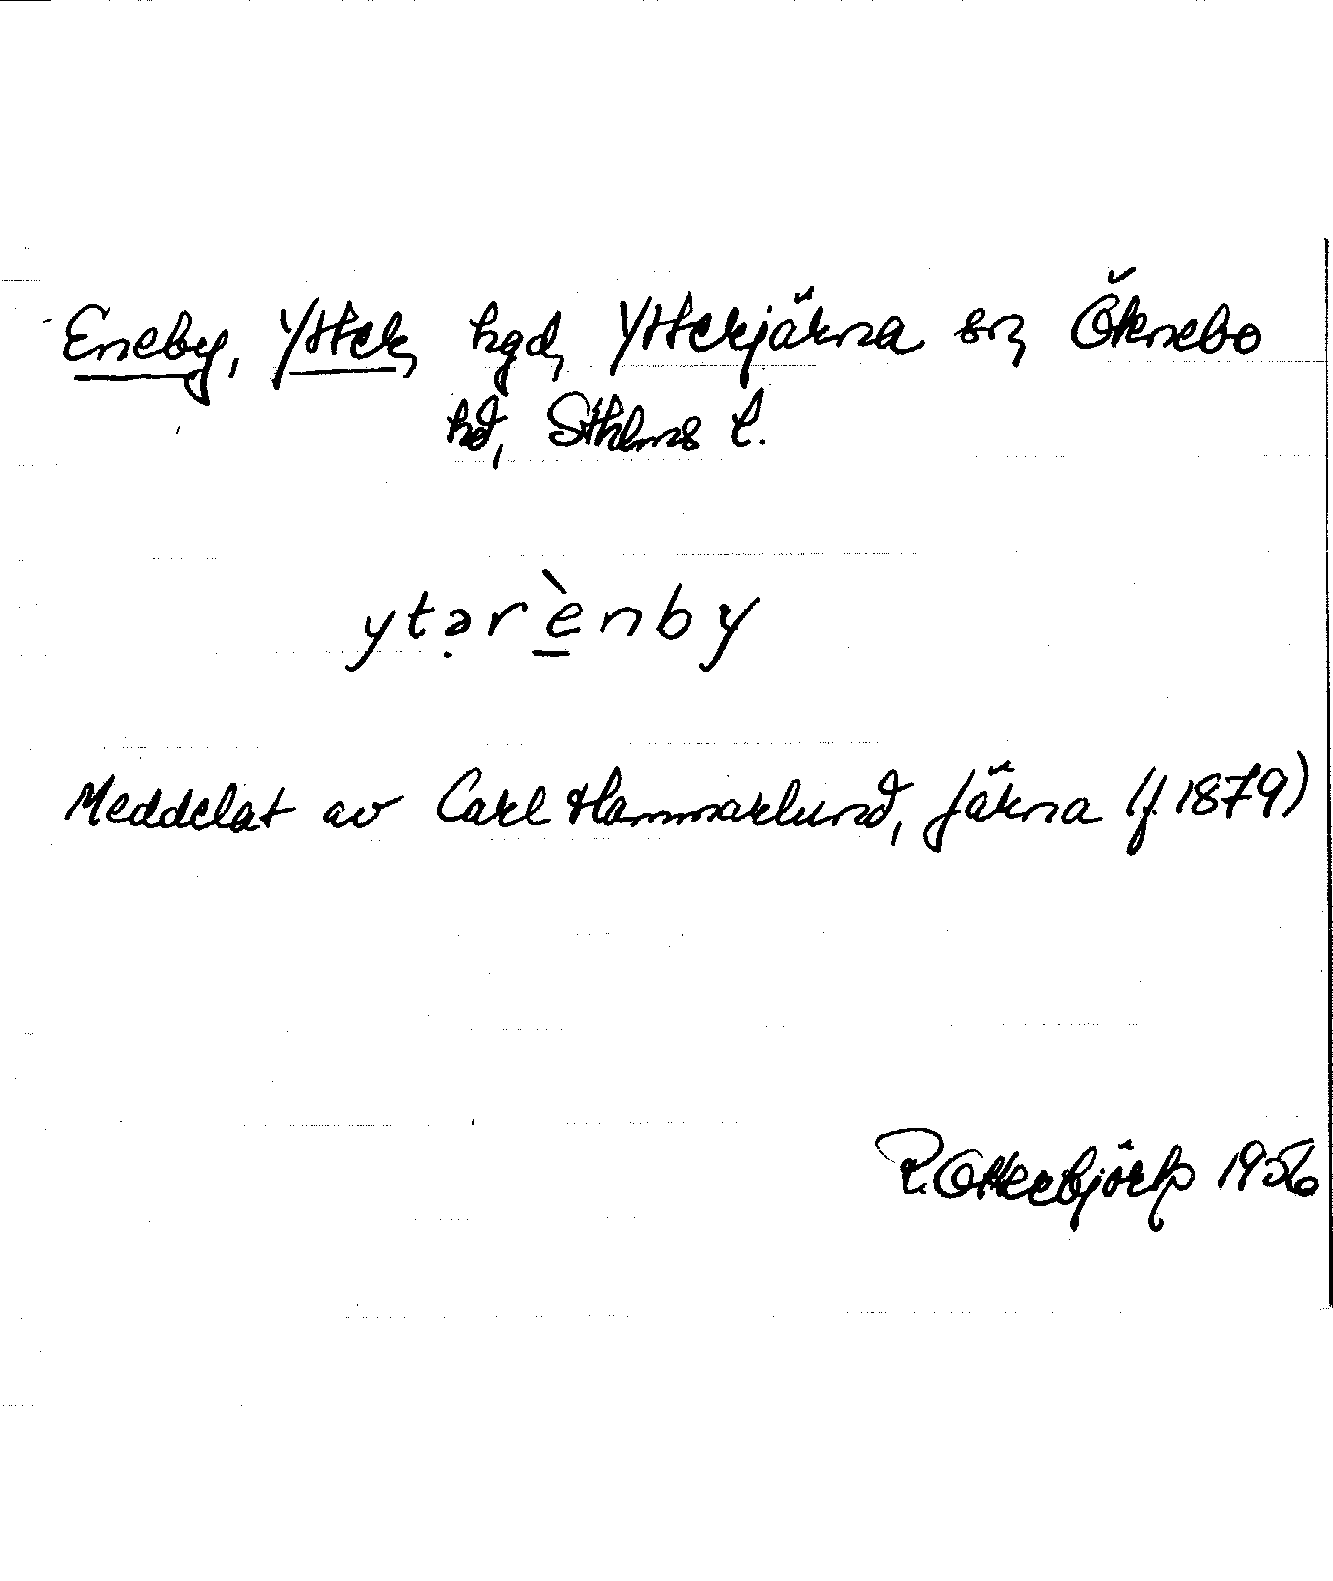 Eneby, Ytter, hgd, Ytterjärna sn, Öknebo
hd, Sthlms l.
ytə̣rè̱nby
Meddelat av Carl Hammarlund, Järna (f. 1879)
R. Otterbjörk 1956